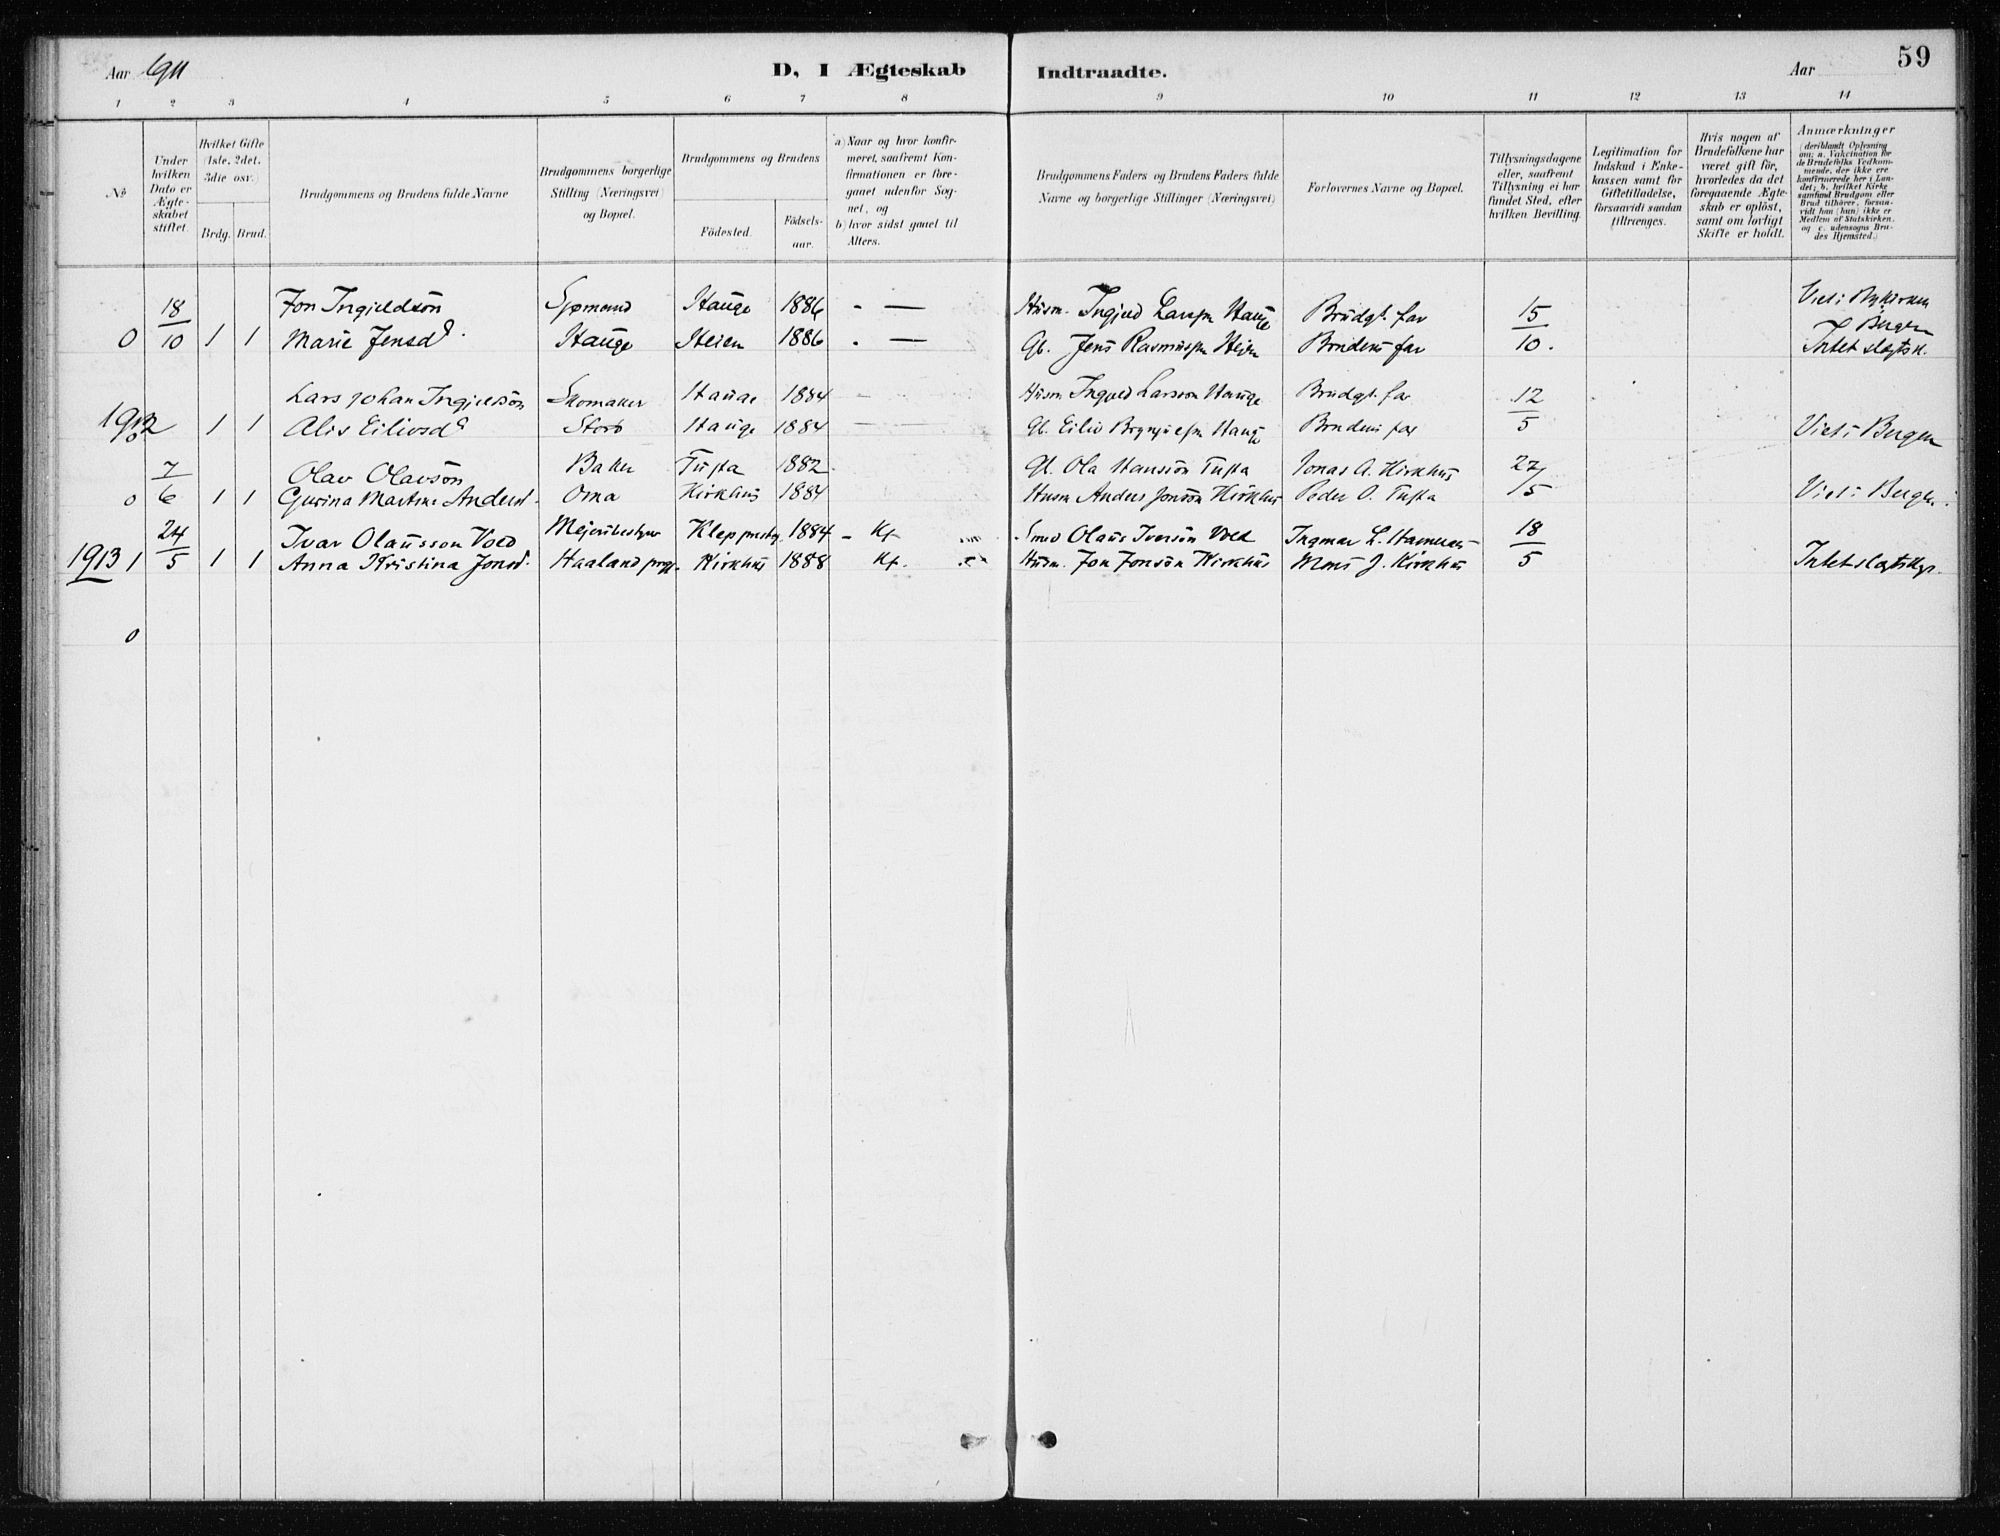 Aar 1911 D, I Ægteskab Indtraadte. Aar 59
1 2 3 4 5 6 7 8 9 10 11 12 13 14
No
Under hvilken Dato er Ægteskabet stiftet.
Hvilket Gifte (1ste, 2det, 3die osv.)
Brdg. Brud.
Brudgommens og Brudens fulde Navne
Brudgommens borgerlige Stilling (Næringsvei) og Bopæl.
Brudgommens og Brudens
Fødested. Fødselsaar.
a) Naar og hvor konfirmeret, saafremt Konfirmationen er foregaaet udenfor Sognet, og
b) hvor sidst gaaet til Alters.
Brudgommens Faders og Brudens Faders fulde Navne og borgerlige Stillinger (Næringsvei)
Forlovernes Navne og Bopæl.
Tillysningsdagene eller, saafremt Tillysning ei har fundet Sted, efter hvilken Bevilling.
Legitimation for Indskud i Enkekassen samt for Giftetilladelse, forsaavidt saadan tiltrænges.
Hvis nogen af Brudefolkene har været gift før, hvorledes da det foregaaende Ægteskab er opløst, samt om lovligt Skifte er holdt.
Anmærkninger (deriblandt Oplysning om: a. Vakcination for de Brudefolks Vedkommende, der ikke ere konfirmerede her i Landet; b. hvilket Kirkesamfund Brudgom eller Brud tilhører, forsaavidt han (hun) ikke er Medlem af Statskirken, og c. udensogns Brudes Hjemsted.)
18 Jon Ingjeldsön Sjømand Hauge 1886 - — Husm. Ingjeld Larssøn Hauge Brudgt. far 15 Viet i Nykirken Bergen
0 10 1 1 Marie Jensd. Hauge Heien 1886 - — Gb. Jens Rasmussøn Heien Brudens far 10. Intet slægtsk.
Lars Johan Ingjeldsön Skomaker Hauge 1884 — Husm Ingjeld Larsson Hauge Brudgt. far 12
1912 0 1 1 Alis Eilivsd Storb Hauge 1884 — Gb. Eiliv Hauge Brudens far 5 Viet i Bergen
7 Olav Olavsön Baker Tufta 1882 Gb. Ola Hansson Tufta Jonas A. Kirkhus 27
0 6 1 1 Gurina Martine Andersd. Oma Kirkhus 1884 Husm Anders Jonsön Kirkhus Peder O. Tufta 5 Viet i Bergen.
24 Ivar Olausson Vold Meieribestyrer Klepp prestg. 1884 - Kf Smed Olaus Iversön Vold Ingmar L. 18
1913 1 5 1 1 Anna Kristina Jonsd. Haaland prgj. Kirkhus 1888 Kf. Husm. Jon Jonsön Kirkhus Mons J. Kirkhus 5 Intet slægtskp.
0